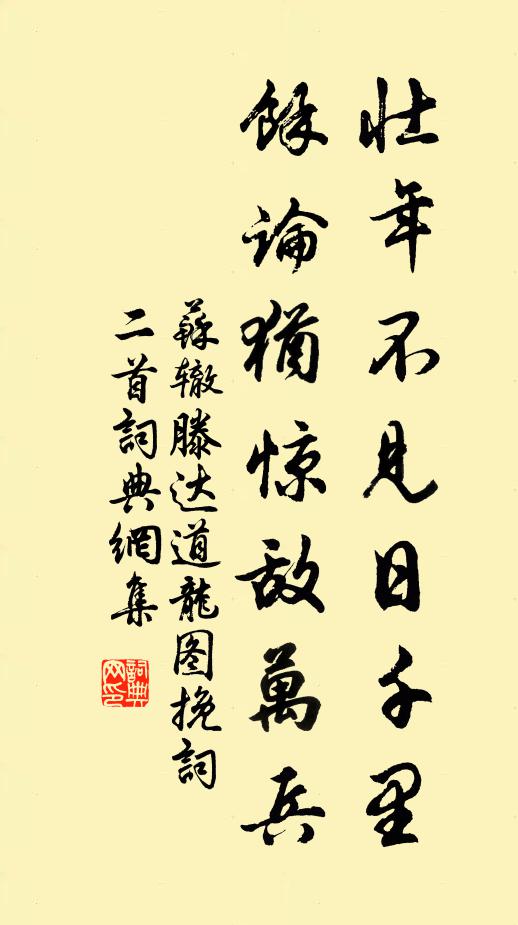 壮年不見日千里
餘論猶惊敌萬兵
蘇辙滕达道龍图挽詞
二首詞典網集
詞典网印